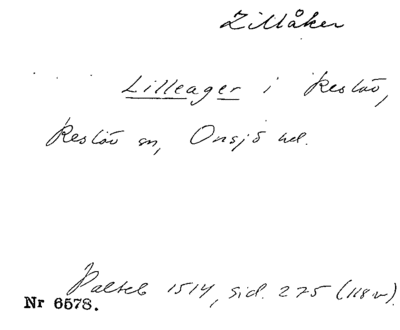 Lillåker
Lilleager i Reslöv,
Reslöv sn, Onsjö hd.
Palteb 1514, sid. 275 (118v).
Nr 6578.